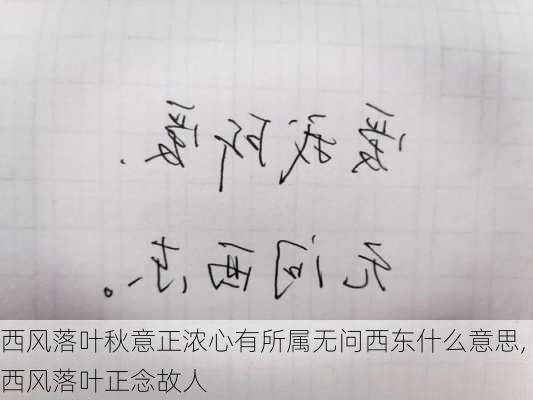 爱我所爱.
无问西东。
西风落叶秋意正浓心有所属无问西东什么意思,
西风落叶正念故人